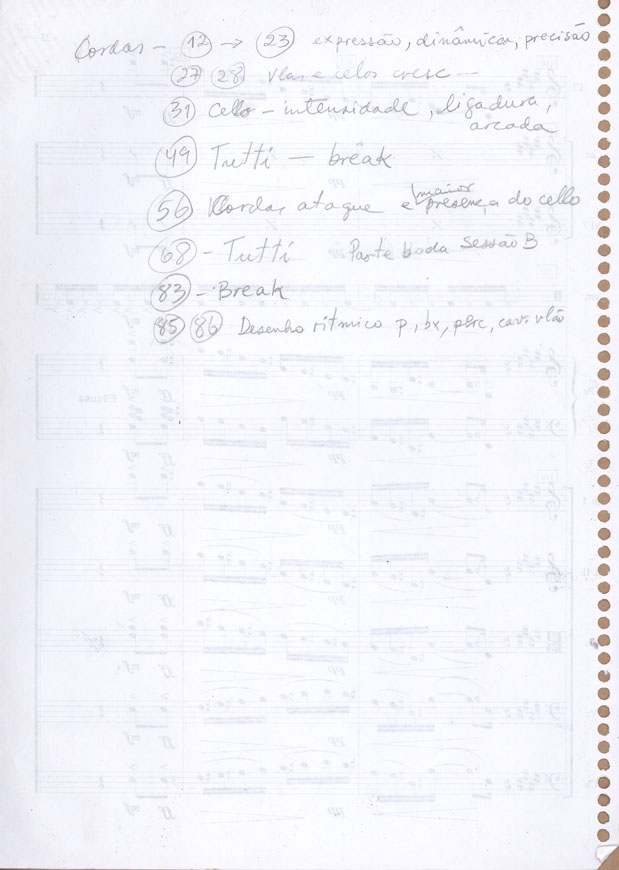 Cordas - 12 → 23 expressão, dinâmica, precisão
27 28 vlas e celos cresc —
31 Cello - intensidade, ligadura,
arcada
49 Tutti — break
56 Cordas ataque e maior presença do cello
68 - Tutti Parte b da sessão B
83 - Break
85 86 Desenho rítmico p, bx, perc, cav. vlão